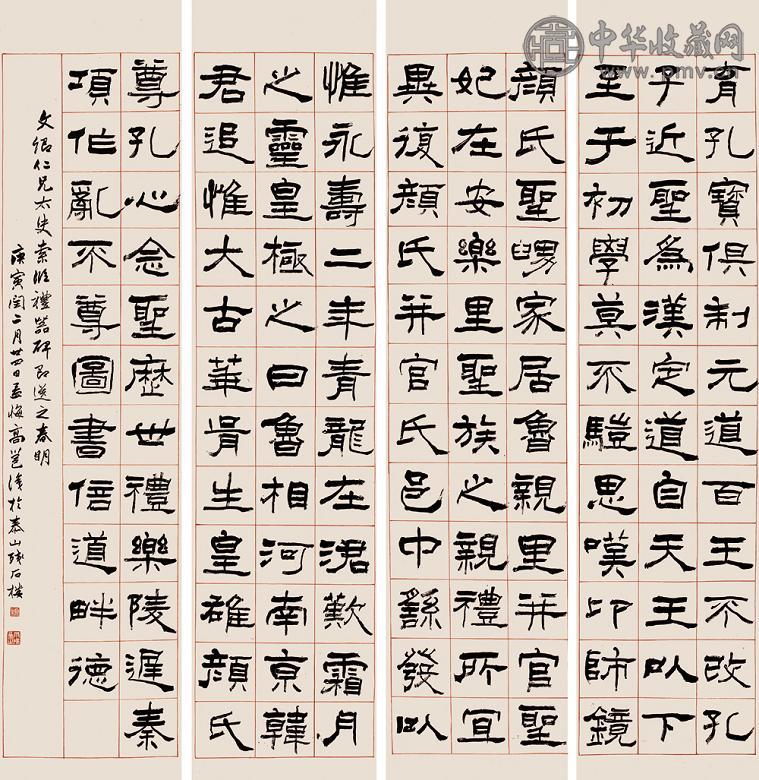 中华收藏网
育孔寶俱制元道百王不改孔
子近聖爲漢定道自天王以下
至于初學莫不思嘆卬師鏡
顏氏聖舅家居魯親里并官聖
妃在安樂里聖族之親禮所宜
異復顏氏并官氏邑中繇發以
惟永壽二年青龍在涒歎霜月
之靈皇極之日魯相河南京韓
君追惟大古華胥生皇雄顏氏
尊孔心念聖歷世禮樂陵遲秦
項作亂不尊圖書倍道畔德
文仁兄太史索臨禮器碑即送之春明
庚寅閏二月廿四日孟悔高邕識於泰山殘石樓